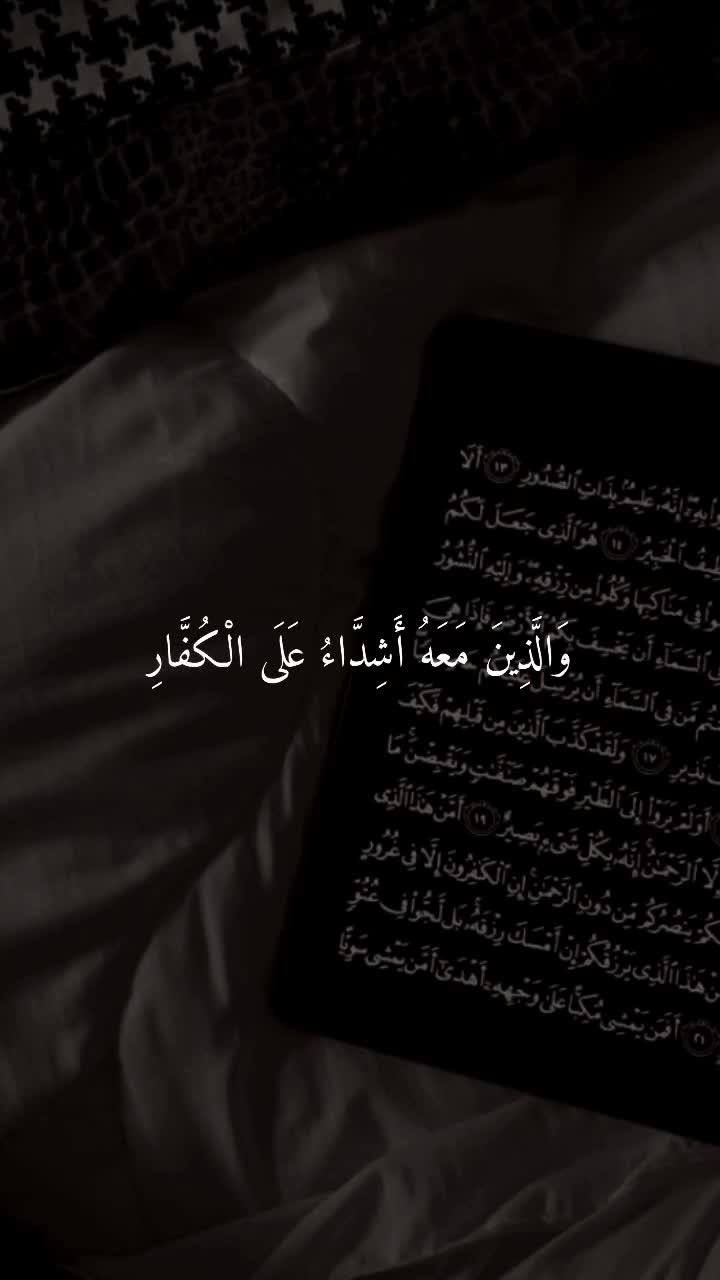 وَالَّذِينَ مَعَهُ أَشِدَّاءُ عَلَى الْكُفَّارِ
إِنَّهُۥ عَلِيمُۢ بِذَاتِ ٱلصُّدُورِ ١٣ أَلَا
ٱلْخَبِيرُ ١٤ هُوَ ٱلَّذِى جَعَلَ لَكُمُ
فِى مَنَاكِبِهَا وَكُلُوا۟ مِن رِّزْقِهِۦ وَإِلَيْهِ ٱلنُّشُورُ
ٱلسَّمَآءِ أَن يَخْسِفَ فَإِذَا هِىَ
مَّن فِى ٱلسَّمَآءِ أَن يُرْسِلَ
نَذِيرِ ١٧ وَلَقَدْ كَذَّبَ ٱلَّذِينَ مِن قَبْلِهِمْ فَكَيْفَ
أَوَلَمْ يَرَوْا۟ إِلَى ٱلطَّيْرِ فَوْقَهُمْ صَٰٓفَّٰتٍ وَيَقْبِضْنَ مَا
إِلَّا ٱلرَّحْمَٰنُ إِنَّهُۥ بِكُلِّ شَىْءٍۭ بَصِيرٌ ١٩ أَمَّنْ هَٰذَا ٱلَّذِى
يَنصُرُكُم مِّن دُونِ ٱلرَّحْمَٰنِ إِنِ ٱلْكَٰفِرُونَ إِلَّا فِى غُرُورٍ
هَٰذَا ٱلَّذِى يَرْزُقُكُمْ إِنْ أَمْسَكَ رِزْقَهُۥ بَل لَّجُّوا۟ فِى عُتُوٍّ
٢١ أَفَمَن يَمْشِى مُكِبًّا عَلَىٰ وَجْهِهِۦٓ أَهْدَىٰٓ أَمَّن يَمْشِى سَوِيًّا